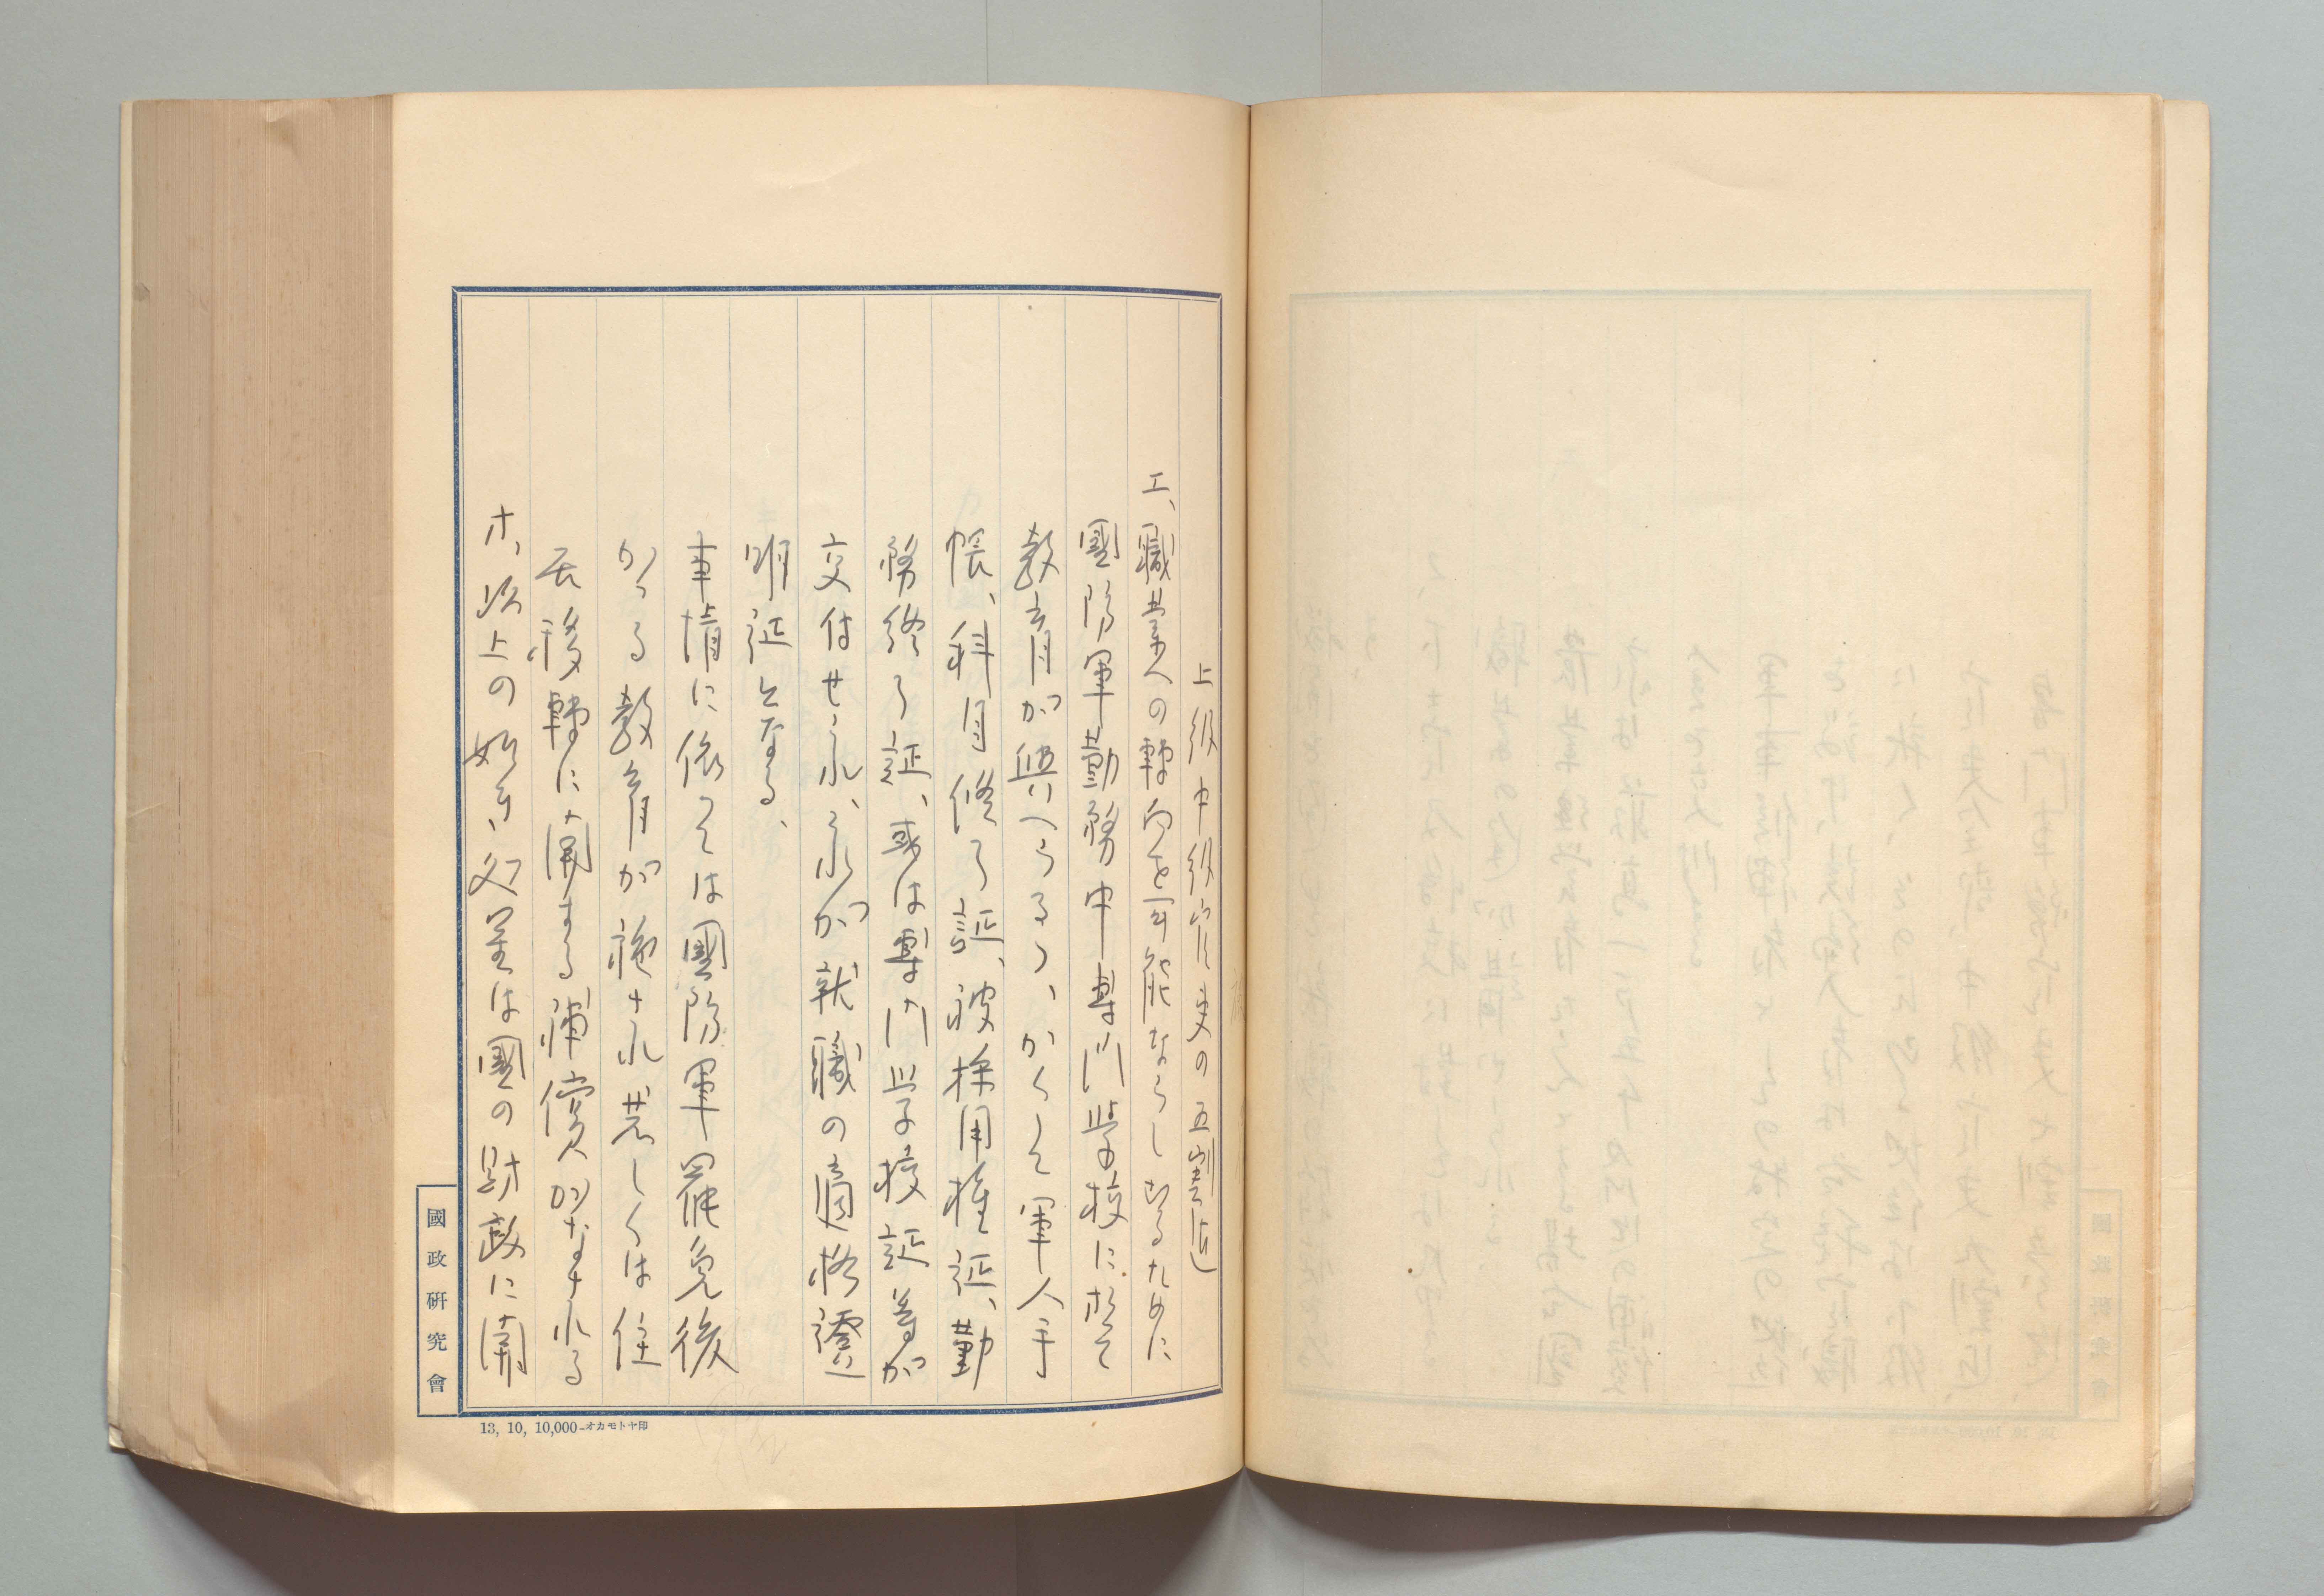 上級中級官吏の五割迄
エ、職業への轉向を可能ならしむるために
國防軍勤務中専門学校に於て
教育が與へらる、かくして軍人手
帳、科目修了証、被採用権証、勤
務終了証、或は専門学校証等が
交付せられ、之れが就職の適格證
明証となる、
事情に依つては國防軍罷免後
かゝる教育が施され若しくは住
居移轉に関する補償がなされる
オ、以上の如き処置は國の財政に関
國政硏究會
13, 10, 10,000—オカモトヤ印